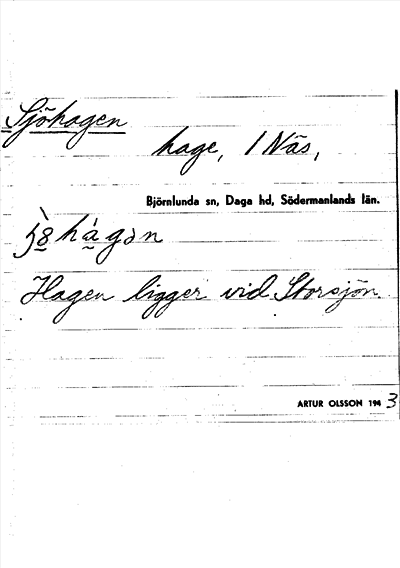 Sjöhagen
hage, 1 Näs,
Björnlunda sn, Daga hd, Södermanlands län.
Hagen ligger vid Storsjön.
ARTUR OLSSON 1943